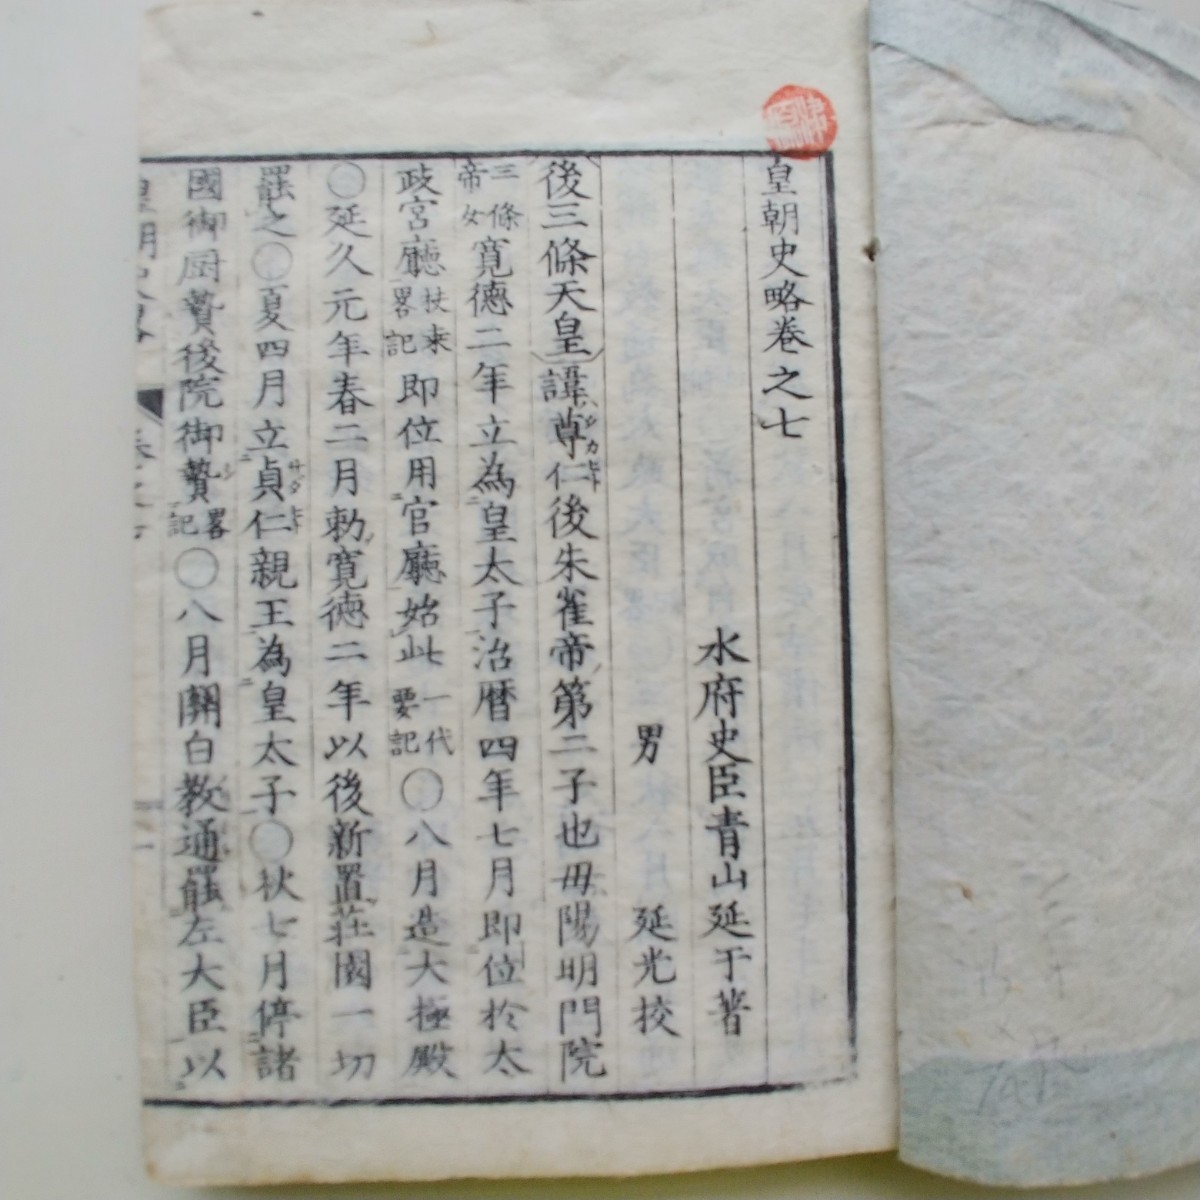 皇朝史略卷之七
水府史臣青山延于著
男 延光校
後三條天皇諱尊仁後朱雀帝第二子也毋陽明門院
三條帝女寛德二年立為皇太子治暦四年七月即位於太
政宮廳扶桒畧記即位用官廳始此一代要記〇八月造大極殿
〇延久元年春二月勅寛德二年以後新置莊園一切
罷之〇夏四月立貞仁親王為皇太子〇秋七月停諸
國御厨贄後院御贄畧記〇八月關白教通罷左大臣以